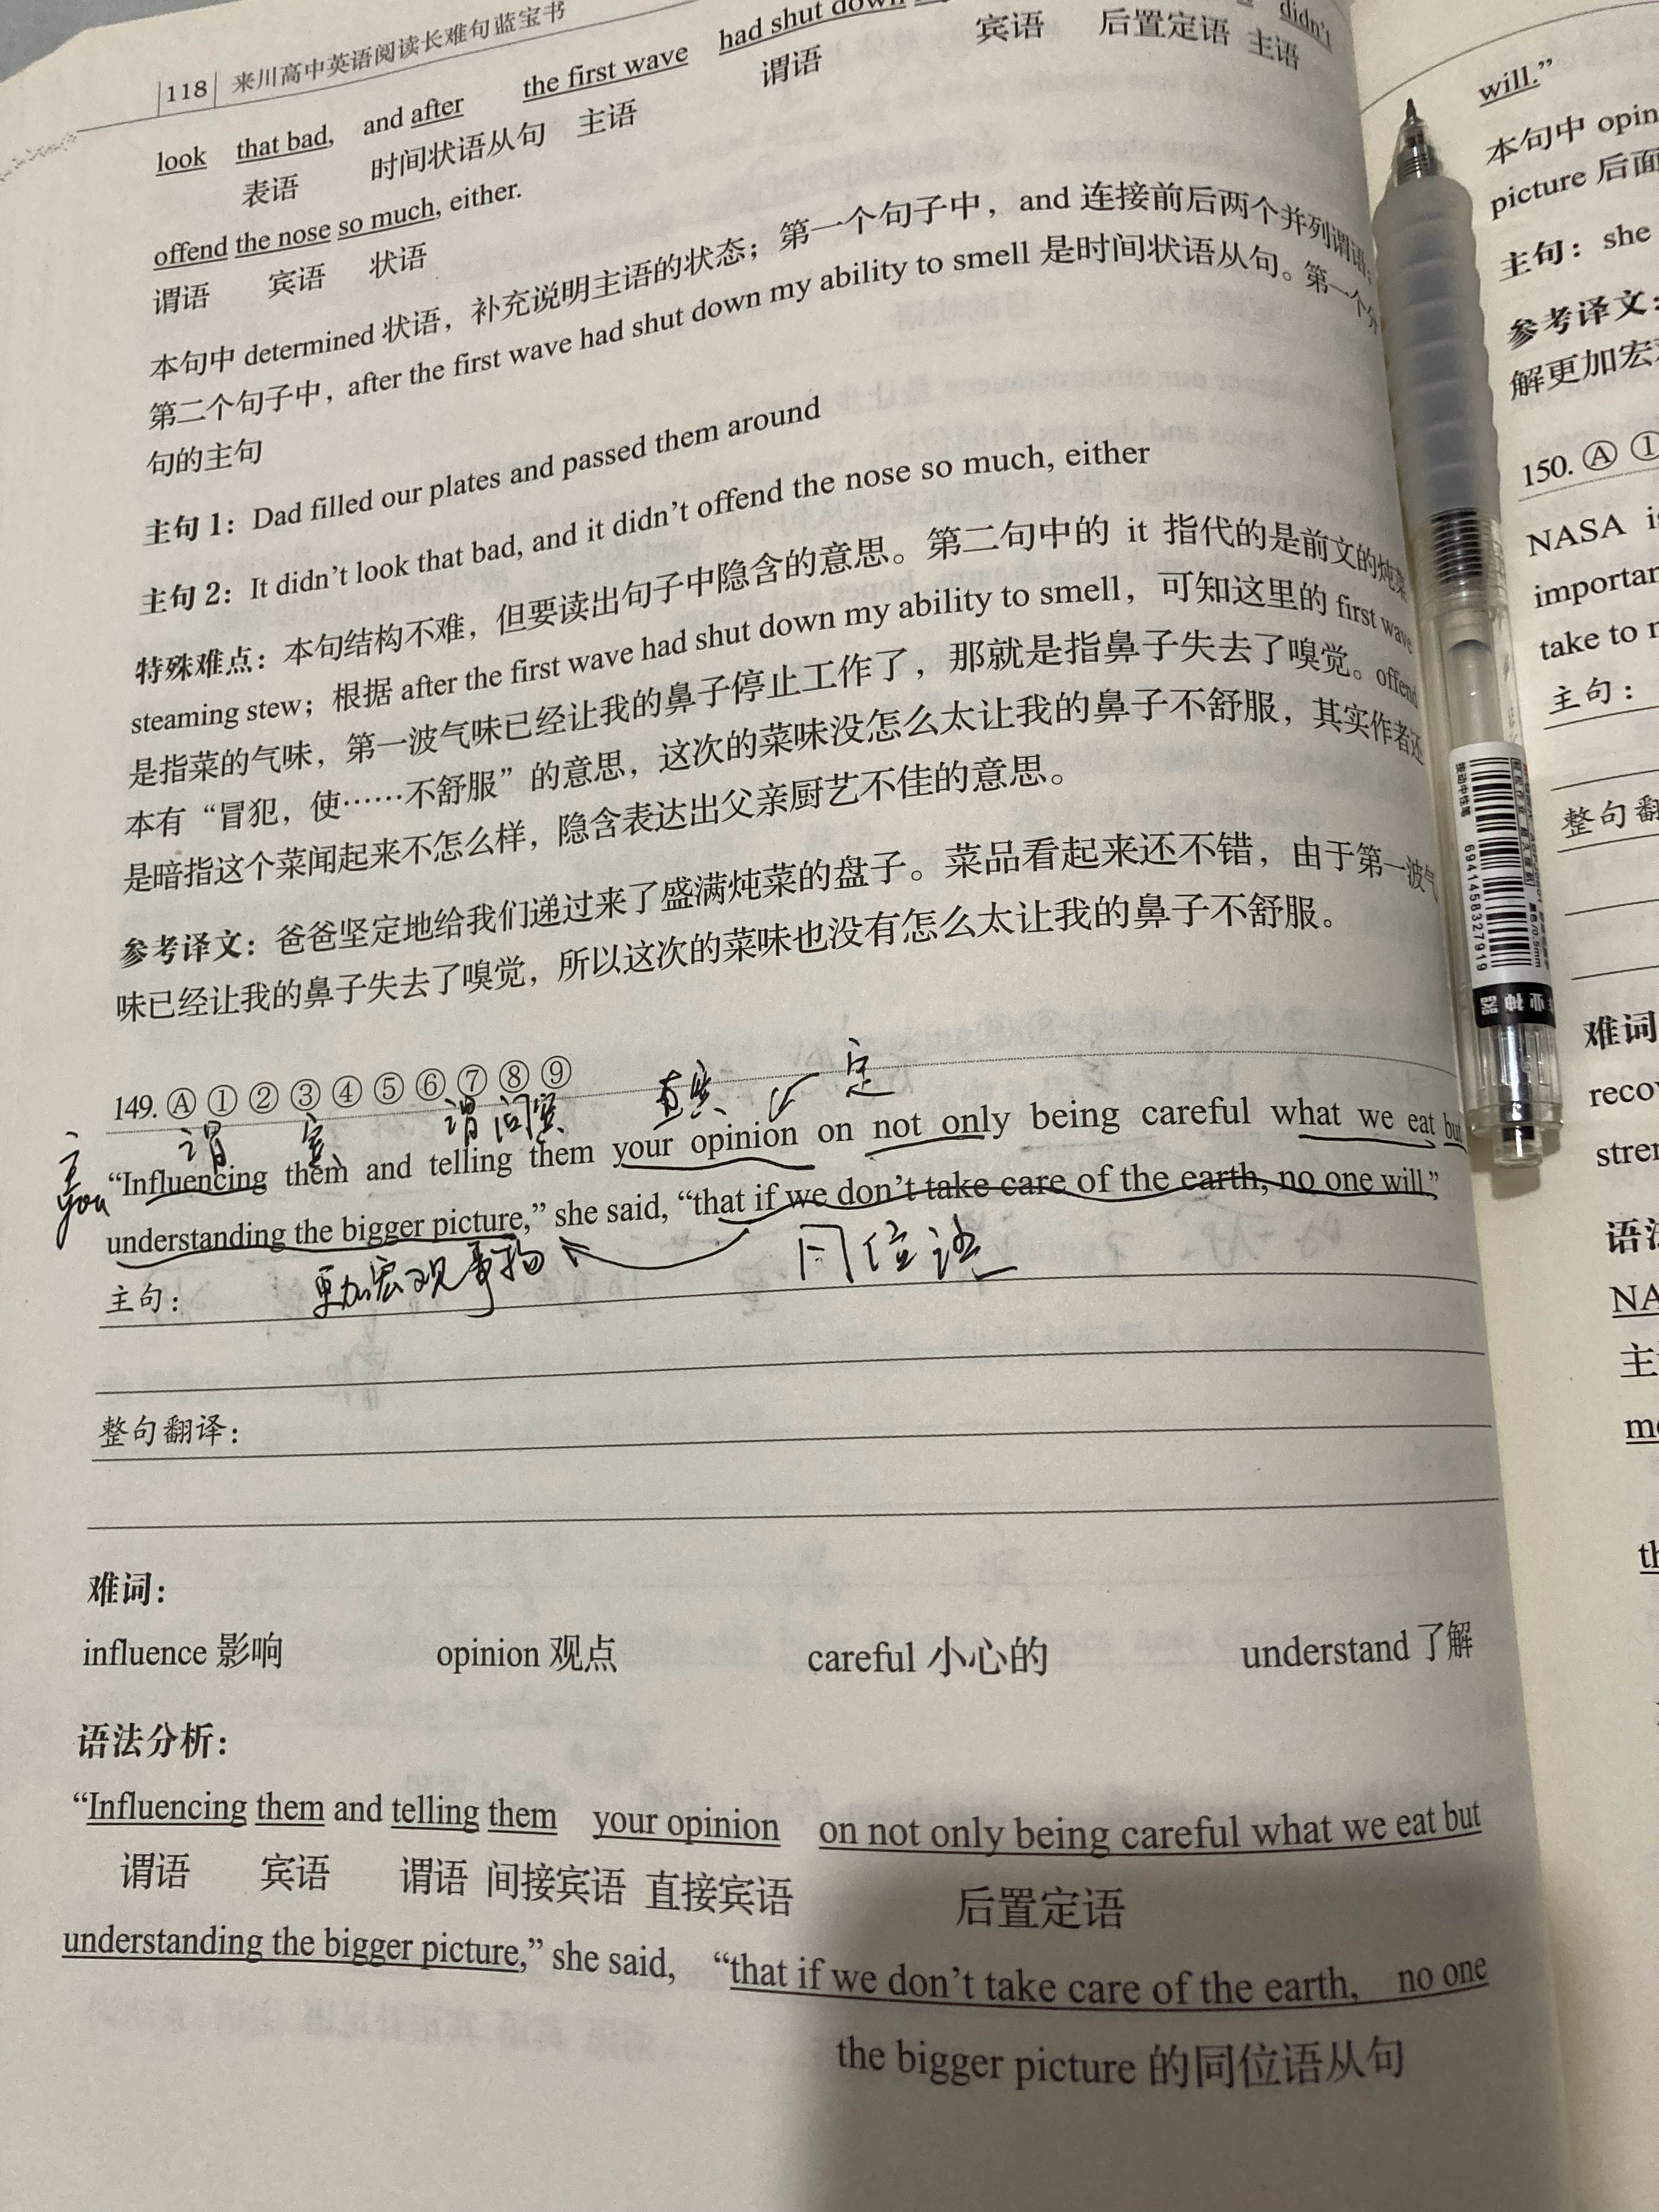 118 来川高中英语阅读长难句蓝宝书
look that bad, and after the first wave had shut down didn't
表语 时间状语从句 主语 谓语 宾语 后置定语 主语
offend the nose so much, either.
谓语 宾语 状语
本句中 determined 状语，补充说明主语的状态；第一个句子中，and 连接前后两个并列谓语；
第二个句子中，after the first wave had shut down my ability to smell 是时间状语从句。第一个分
句的主句
主句 1：Dad filled our plates and passed them around
主句 2：It didn't look that bad, and it didn't offend the nose so much, either
特殊难点：本句结构不难，但要读出句子中隐含的意思。第二句中的 it 指代的是前文的炖菜
steaming stew；根据 after the first wave had shut down my ability to smell，可知这里的 first wave
是指菜的气味，第一波气味已经让我的鼻子停止工作了，那就是指鼻子失去了嗅觉。offend
本有“冒犯，使……不舒服”的意思，这次的菜味没怎么太让我的鼻子不舒服，其实作者还
是暗指这个菜闻起来不怎么样，隐含表达出父亲厨艺不佳的意思。
参考译文：爸爸坚定地给我们递过来了盛满炖菜的盘子。菜品看起来还不错，由于第一波气
味已经让我的鼻子失去了嗅觉，所以这次的菜味也没有怎么太让我的鼻子不舒服。
149. Ⓐ ① ② ③ ④ ⑤ ⑥ ⑦ ⑧ ⑨
主 谓 宾 谓 间宾 直宾 定
you
“Influencing them and telling them your opinion on not only being careful what we eat but
understanding the bigger picture,” she said, “that if we don't take care of the earth, no one will.”
更加宏观事物 同位语
主句：
整句翻译：
难词：
influence 影响 opinion 观点 careful 小心的 understand 了解
语法分析：
“Influencing them and telling them your opinion on not only being careful what we eat but
谓语 宾语 谓语 间接宾语 直接宾语 后置定语
understanding the bigger picture,” she said, “that if we don't take care of the earth, no one
the bigger picture 的同位语从句
will.”
本句中 opin
picture 后面
主句：she
参考译文：
解更加宏
150. Ⓐ ①
NASA is
importan
take to
主句：
整句翻
难词
recov
stren
语法
NA
主
按动中性笔
6941458327919